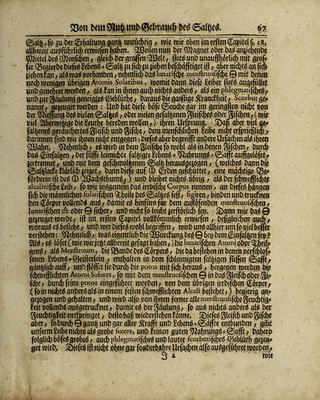 Von dem Nutz und Gebrauch des Saltzes. 67
Saltz, so zu der Erhaltung gantz untüchtig, wie wir oben im ersten Capitel §. 18.
allbereit ausführlich erwiesen haben. Weilen nun der Magnet oder das anziehende
Mittel des Menschen, gleich der grossen Welt, stets und unaufhörlich mit gros-
ser Begierde dieses Lebens-Saltz zu sich zu ziehen beschäfftiget ist, aber nichts an sich
ziehen kan, als was vorhanden, nehmlich das lunarische menstruosische ⊖ mit denen
noch wenigen übrigen Atomis Solaribus, womit denn dieser Leib stets angefüllet
und genehret worden, als kan in ihnen auch nichts anders, als ein phlegmatisches,
und zur Fäulung geneigtes Geblüthe, daraus die garstige Kranckheit, Scorbut ge-
nannt, gezeuget werden: Und hat diese böse Seuche gar im geringsten nicht von
der Niessung des vielen Saltzes, oder vielen gesaltzenen Fleisches oder Fischen, (wie
viel Aberwitzige die Leuthe bereden wollen,) ihren Ursprung. Daß aber viel ge-
saltzenes geräuchertes Fleisch und Fische, dem menschlichen Leibe nicht ersprießlich,
darinnen sind wir ihnen nicht entgegen; dieses aber begreifft andere Ursachen als ihren
Wahn. Nehmlich, es werd in dem Fleische so wohl als in denen Fischen, durch
das Einsaltzen, der süsse leimichte saltzige Lebens- und Nahrungs-Safft aufgelöset,
getrennet, und mit dem geschmoltzenen Saltz herausgezogen, (welches dann die
Saltzlacke klärlich zeiget, darin diese auf ⊖ Erden geschüttet, eine mächtige Be-
förderin ist des ⊖ Wachsthums,) und bleibet nichts übrig, als der schwefflichte
alcalinische Leib, so wir insgemein das irrdische Corpus nennen, an dieses hängen
sich die männlichen solarischen Theile des Saltzes fest, figiren, binden und trucknen
den Cörper vollends aus, damit es hinfüro vor dem auflösenden menstruosischen,
lunarischen oder ⊖ sicher, und nicht so leicht zerfließlich sey. Dann wie das ⊖
gezeuget werde, ist im ersten Capitel vollkömmlich erwiesen, desgleichen auch,
woraus es bestehe, und wer dieses wohl begreiffet, wird uns allhier um so viel besser
verstehen: Nehmlich, was eigentlich die Würckung des ⊖ bey dem Einsaltzen sey?
Als, es löset (wie wir jetzt allbereit gesagt haben,) die lunarischen Atomi oder Theil-
gens, als Menstruum, die Bande des Cörpers, die da bestehen in denen perschloß-
inen Lebens-Geisterlein, enthalten in dem schleimigten saltzigen süssen Safft,
gäntzlich auff, und führet sie durch die poros mit sich heraus, hergegen werden die
schwefflichten Atomi Solares, so mit dem menstruosischen ⊖ in das Fleisch oder Fi-
sche, durch seine poros eingeführet worden, von dem übrigen irrdischen Cörper,
(so in nichts anders als in einem feisten schwefflichten Alcali bestehet,) begierig an-
gezogen und gehalten, und wird also von ihnen ferner alle menstruosische Feuchtig-
keit vollends ausgetrucknet, damit es der Fäulung, so aus nichts anders als der
Feuchtigkeit entspringet, desto baß wiederstehen könne. Dieses Fleisch und Fische
aber, so durch ⊖ gantz und gar aller Krafft und Lebens-Säffte entbunden, gibt
unserm Leibe nichts als grobe fæces, und keinen guten Nahrungs-Safft, daherο
folglich böses grobes, auch phlegmatisches und lauter scorbutisches Geblüth gezeu-
get wird. Dieses ist nicht ohne gar sonderbahre Ursachen also ausgeführet worden,
J 2 wie